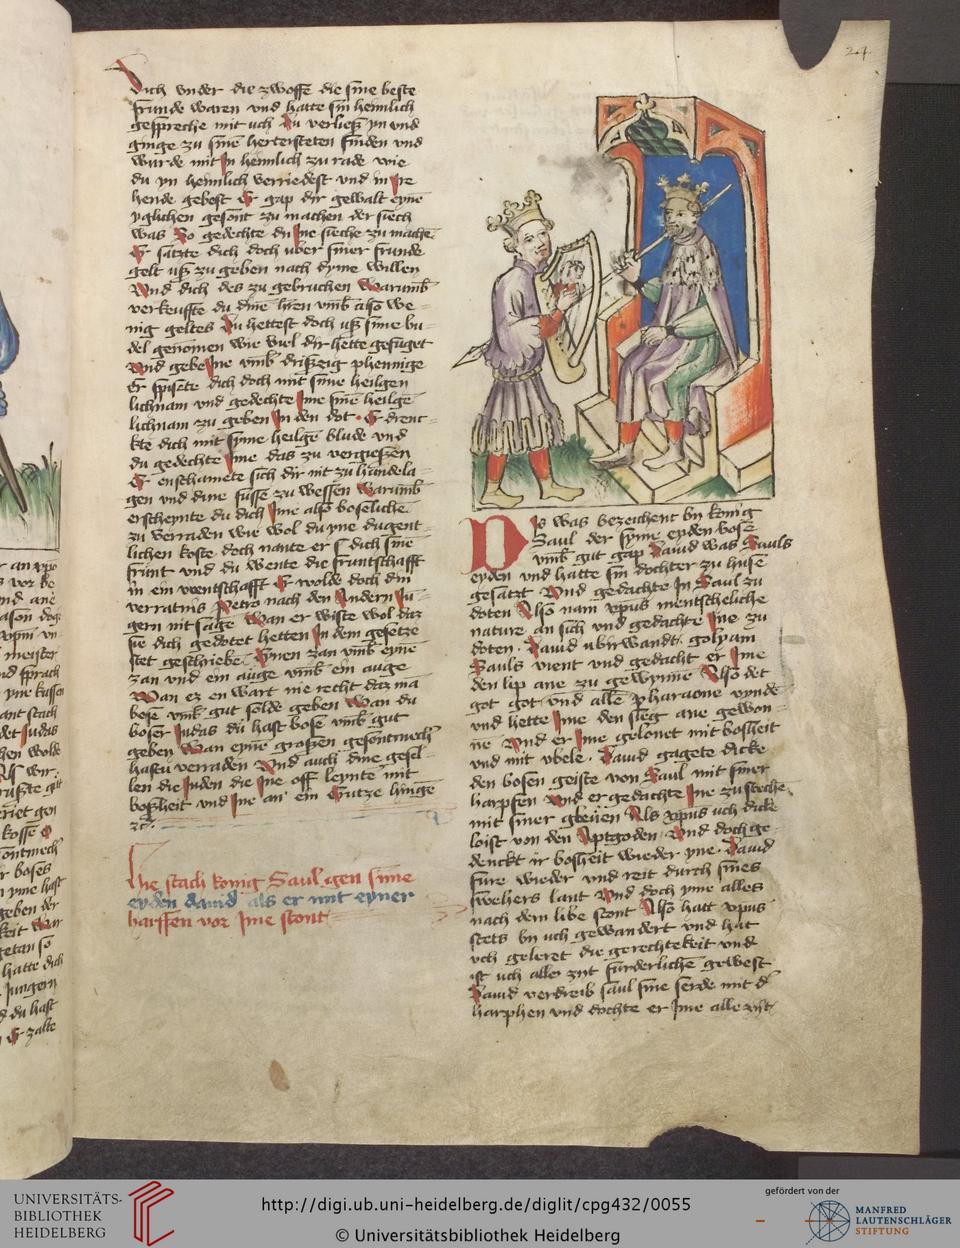 24
Dich vnder die zwolffe die sine beste
frunde waren vnd hatte sin heimlich
gespreche mit uch Du verliesz yn vnd
ginge zu sine hertersteten finden vnd
wurde mit In heimlich zu rade wie
du yn heimlich verriedest vnd in Ire
hende gebest Er gap dir gewalt eyne
yglichen gesont zu machen der siech
was So gedechte du Ime sieche zu mache
Er satzte dich doch uber siner frunde
gelt usz zu geben nach dyme willen
Vnd dich des zu gebruchen Warumb
verkeuffte du dine hren vmb also we
nig geltes Du hettest doch usz sime bu
del genomen wie viel dir hette gefuget
Vnd gebe Ine vmb driszig phennige
Er spiszte dich doch mit sime heilgen
lichnam vnd gedechte Ime sine heilge
lichnam zu geben In den dot Er drenc
kte dich mit syme heilge blude vnd
du gedechte Ime das zu vergieszen
Er enschamete sich dir nit zu handela
gen vnd dine fusse zu weschen Warumb
erscheynte du dich Ime also boseliche
zu verraden wie wol du yne dugent
lichen koste doch nante er dich sine
frunt vnd du wente die fruntschafft
in ein vientschafft Er wolde doch din
verratnis Petro nach den Andern Ju
gern nit sage Wan er wiste wol daz
sie dich gedotet hetten In dem gesetze
stet geschriebe Eynen zan vmb eyne
zan vnd ein auge vmb ein auge
Wan ez en wart nie recht daz ma
bose vmb gut solde geben Wan du
boser Judas du hast bose vmb gut
geben Wan eyne groszen gesontmech
hastu verraden Vnd auch dine gesel
len die Juden die Ine off leynte mit
boszheit vnd Ine an ein Crutze hinge
zc
Hie stach konig Saul gen sime
eyden dauid als er mit eyner
harffen vor Ime stont
Dis was bezeichent by konig
Saul der syme eyden bose
vmb gut gap Dauid was Sauls
eyden vnd hatte sin dochter zu huse
gesatzt Vnd gedachte In Saul zu
doten Also nam xpus mentscheliche
nature an sich vnd gedachte Ine zu
doten Dauid ubirwandt golyam
Sauls vient vnd gedacht er Ime
den lip ane zu gewynne Also det
got got vnd alle Pharaone vynde
vnd hette Ime den sieg ane gewon
ne Vnd er Ime gelonet mit bosheit
vnd mit ubele Dauid gagete dicke
den bosen geiste von Saul mit siner
harpfen Vnd er gedachte Ine zu steche
mit siner gleuen Als xpus uch dicke
loist von den Aptgoden Vnd doch ge
denckt ir bosheit wieder yne Dauid
fure wieder vnd reit durch sines
swehers lant Vnd doch yme alles
nach dem libe stont Also hatt xpus
stets by uch gewandert vnd hat
uch geleret die gerechtekeit vnd
ist uch aller zyt furderliche gewest
Dauid verdreib saul sine serde mit d
harphen vnd dochte er Ime alle zyt
UNIVERSITÄTS-
BIBLIOTHEK
HEIDELBERG
http://digi.ub.uni-heidelberg.de/diglit/cpg432/0055
© Universitätsbibliothek Heidelberg
gefördert von der
MANFRED
LAUTENSCHLÄGER
STIFTUNG